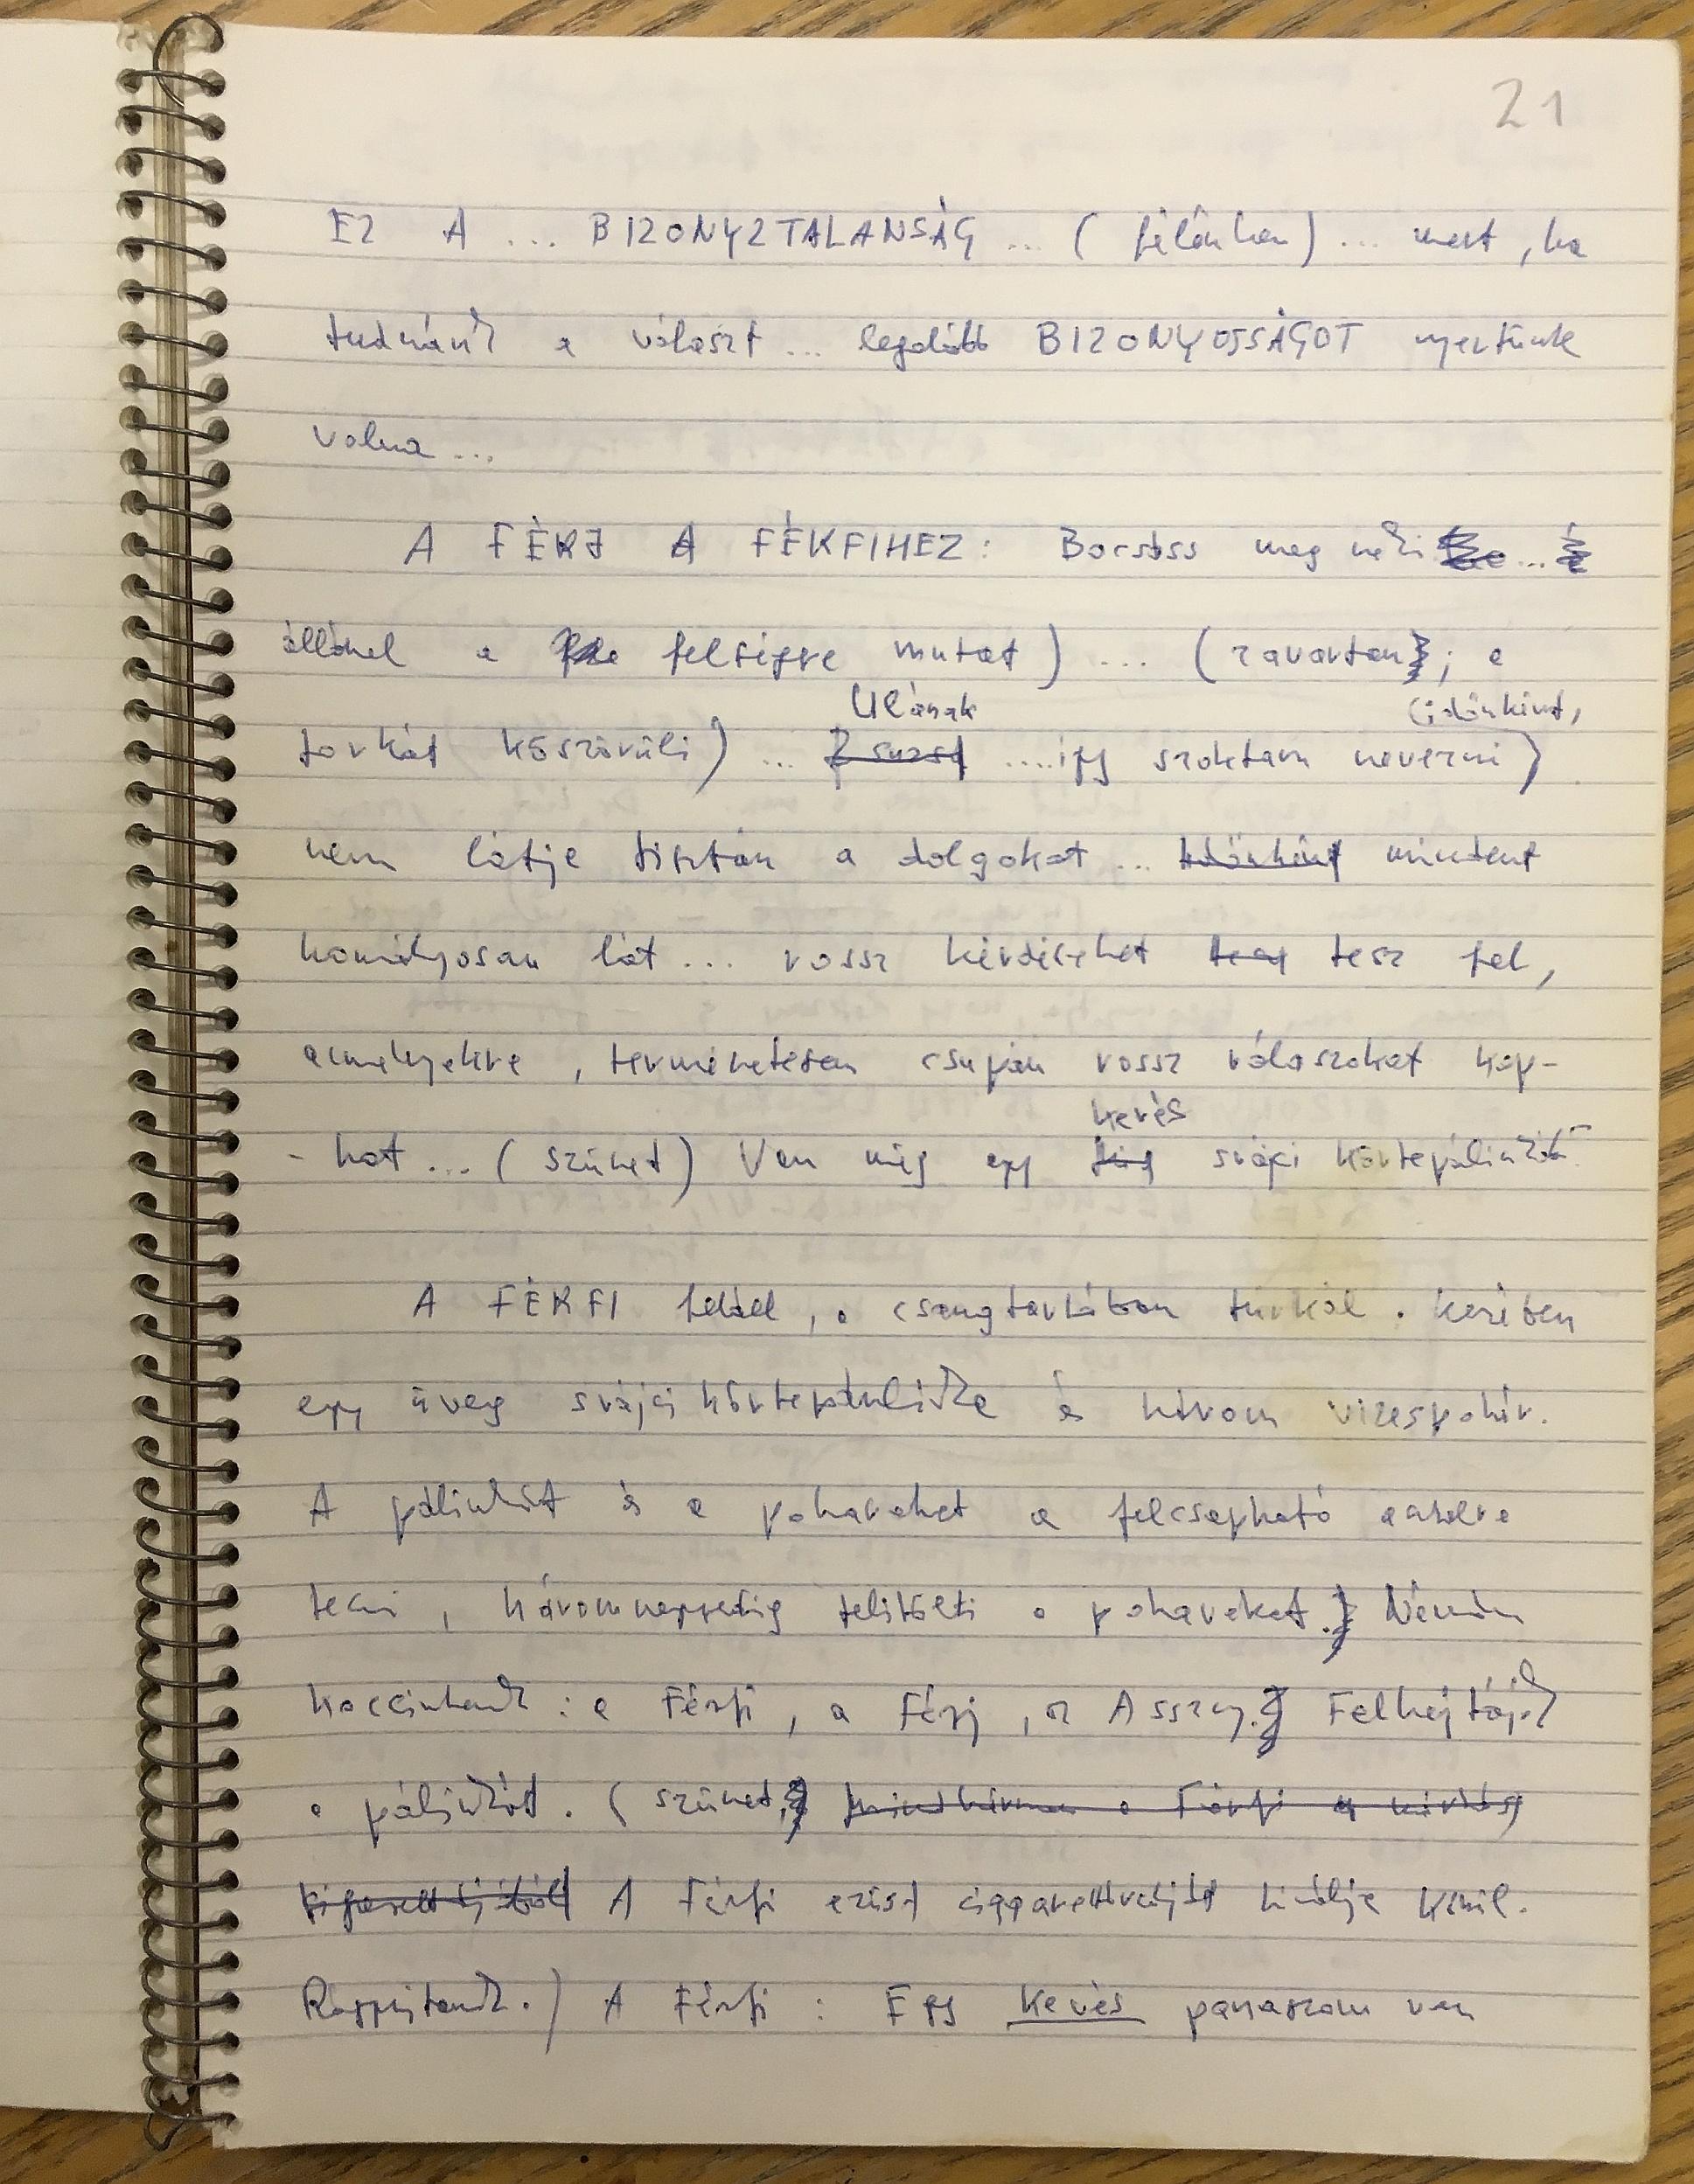 21
EZ A ... BIZONYZTALANSÁG ... (félénken) ... mert, ha
tudnánk a választ ... legalább BIZONYOSSÁGOT nyertünk
volna ...
A FÉRJ A FÉRFIHEZ: Bocsáss meg neki ...
állával a felségre mutat) ... (zavartan; a
Ulának (időnként,
torkát köszörüli) ... Zsuzsá .... így szoktam nevezni)
nem látja tisztán a dolgokat ... időnként mindent
homályosan lát ... rossz kérdéseket tesz fel,
amelyekre, természetesen csupán rossz válaszokat kap-
kevés
-hat ... (szünet) Van még egy svájci körtepálinkád
A FÉRFI feláll, a csomagtartóban turkál. kezében
egy üveg svájci körtepálinka és három vizespohár.
A pálinkát és a poharakat a felcsapható asztalra
teszi, háromnegyedig telitölti a poharakat. Némán
koccintanak: a Férfi, a Férj, az Asszony. Felhajtják
a pálinkát. (szünet, mindhárman a Férfi
A Férfi ezüst cigarettatárcáját kinálja körül.
Rágyújtanak.) A Férfi: Egy kevés panaszom van